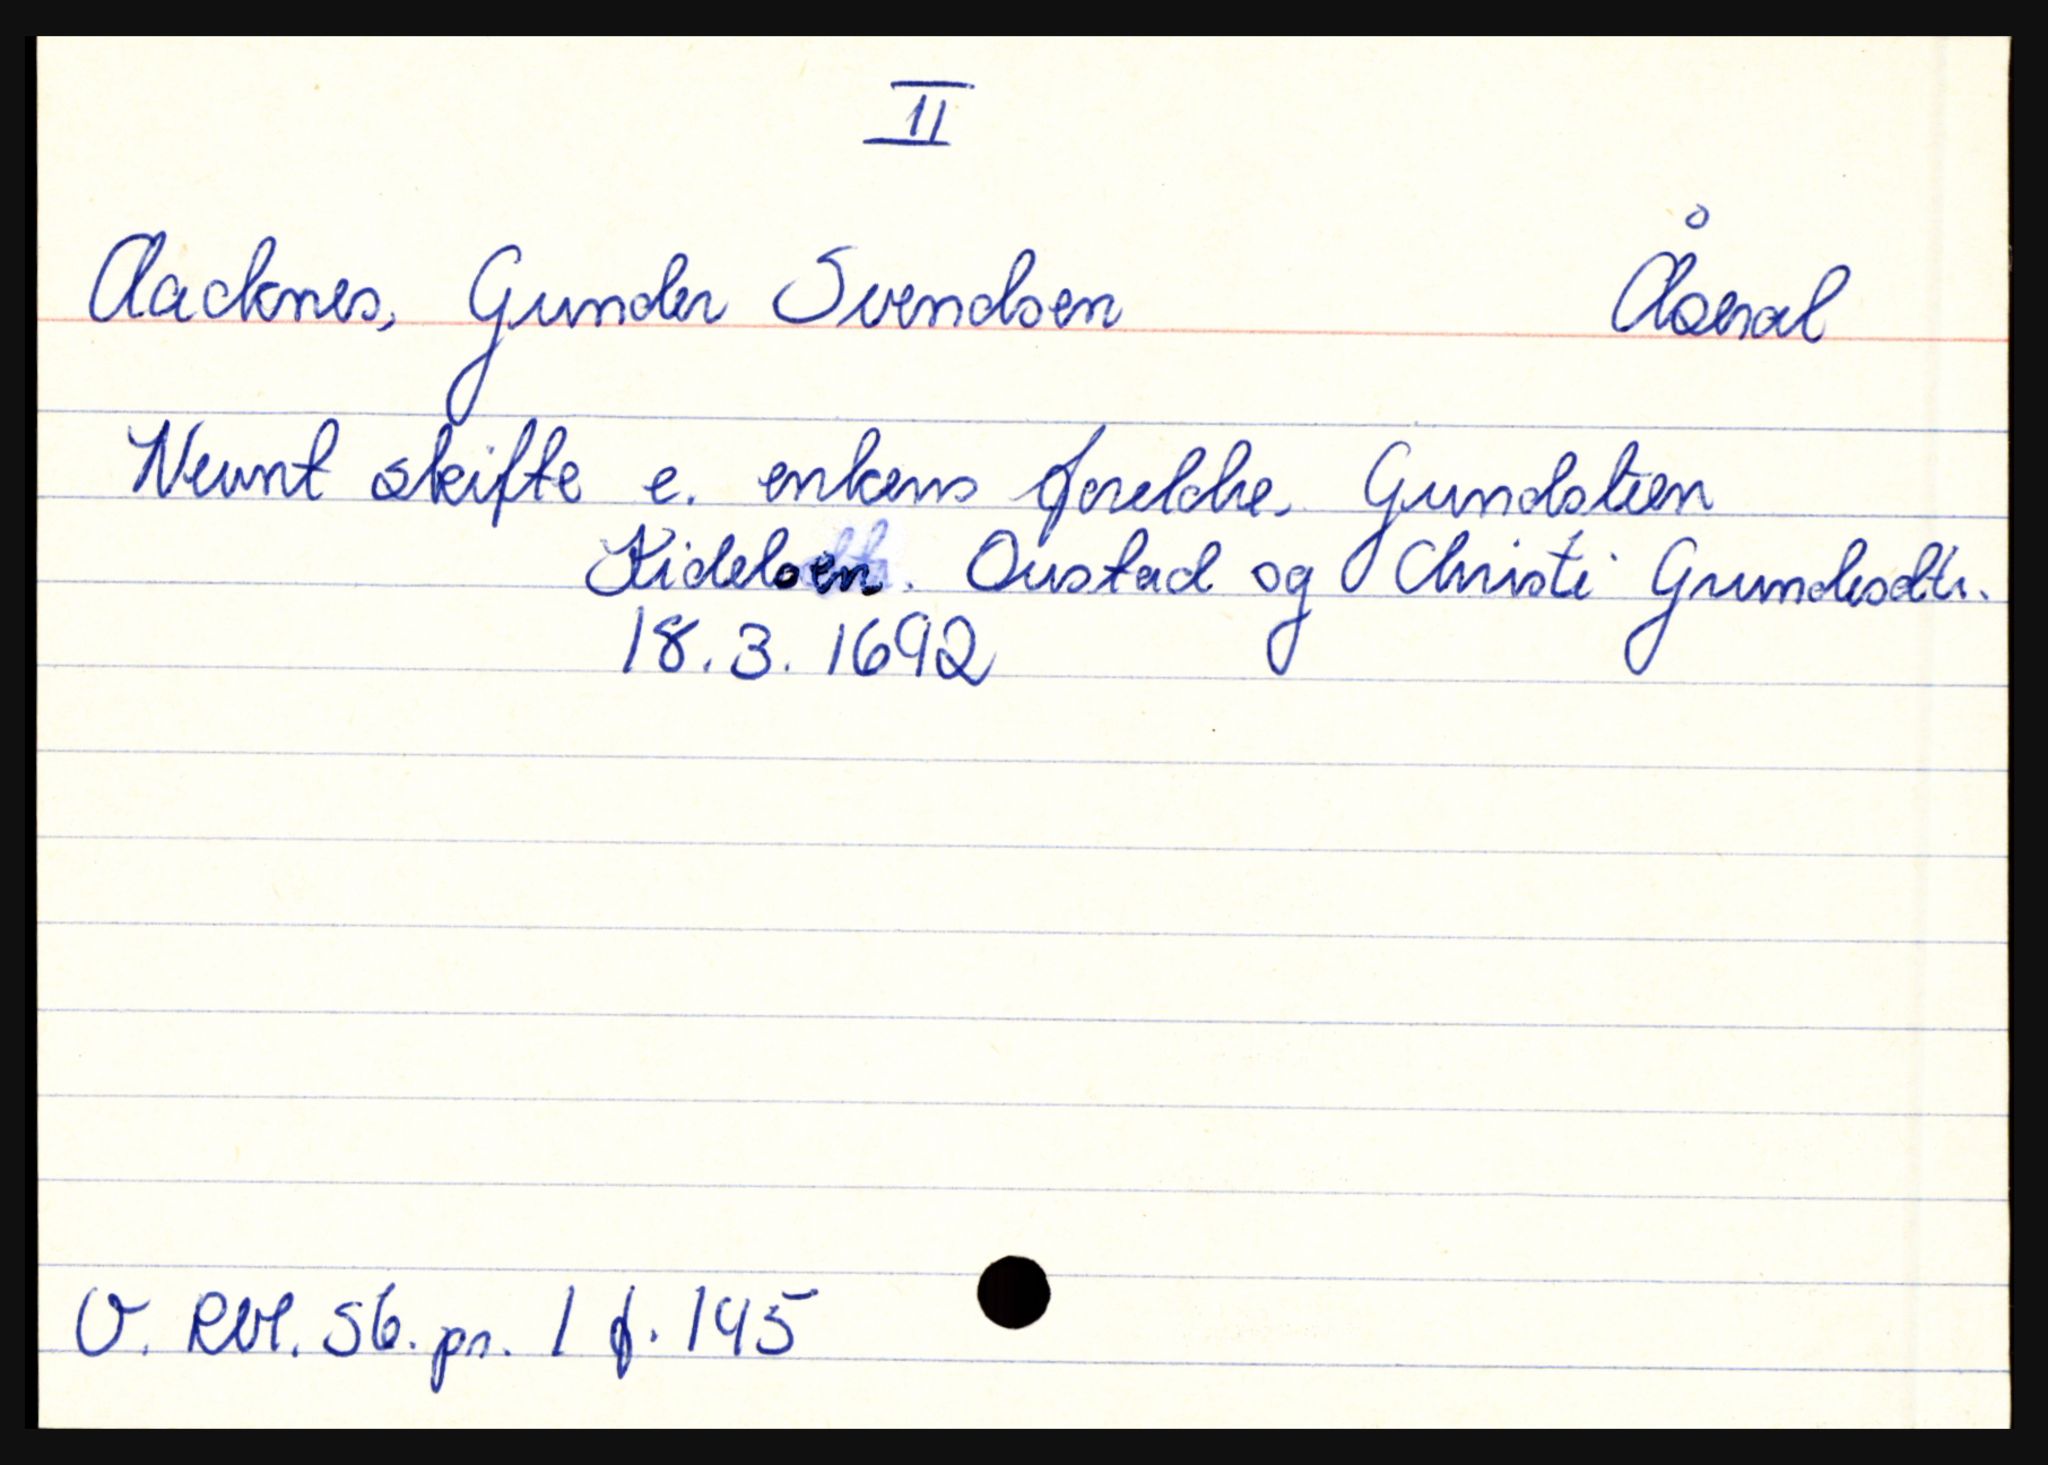 II
Aacknes, Gunder Svendsen Åseral
Nevnt skifte e. enkens foreldre, Gundsten
Kidelsen. Oustad og Christi Grundesdtr.
18.3.1692
V. Rbl. Sb. pr. 1 f. 145